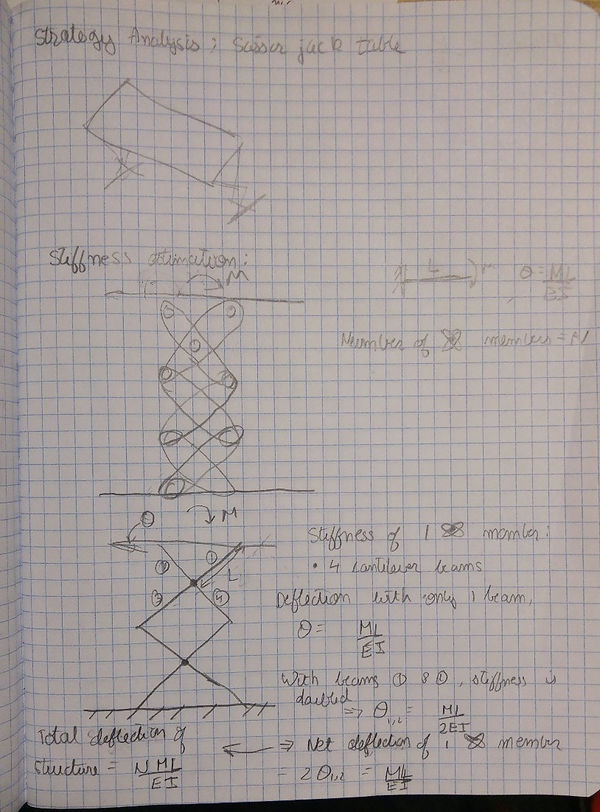 Strategy Analysis; Scissor jack table
Stiffness estimation:
M
L
θ = ML/EI
Number of members = N
M
θ
①
②
③
④
L
Stiffness of 1 member:
• 4 cantilever beams
Deflection with only 1 beam,
θ = ML/EI
With beams ① & ②, stiffness is
doubled
⇒ θ1,2 = ML/2EI
⇒ Net deflection of 1 member
= 2θ1,2 = ML/EI
Total deflection of
structure = NML/EI